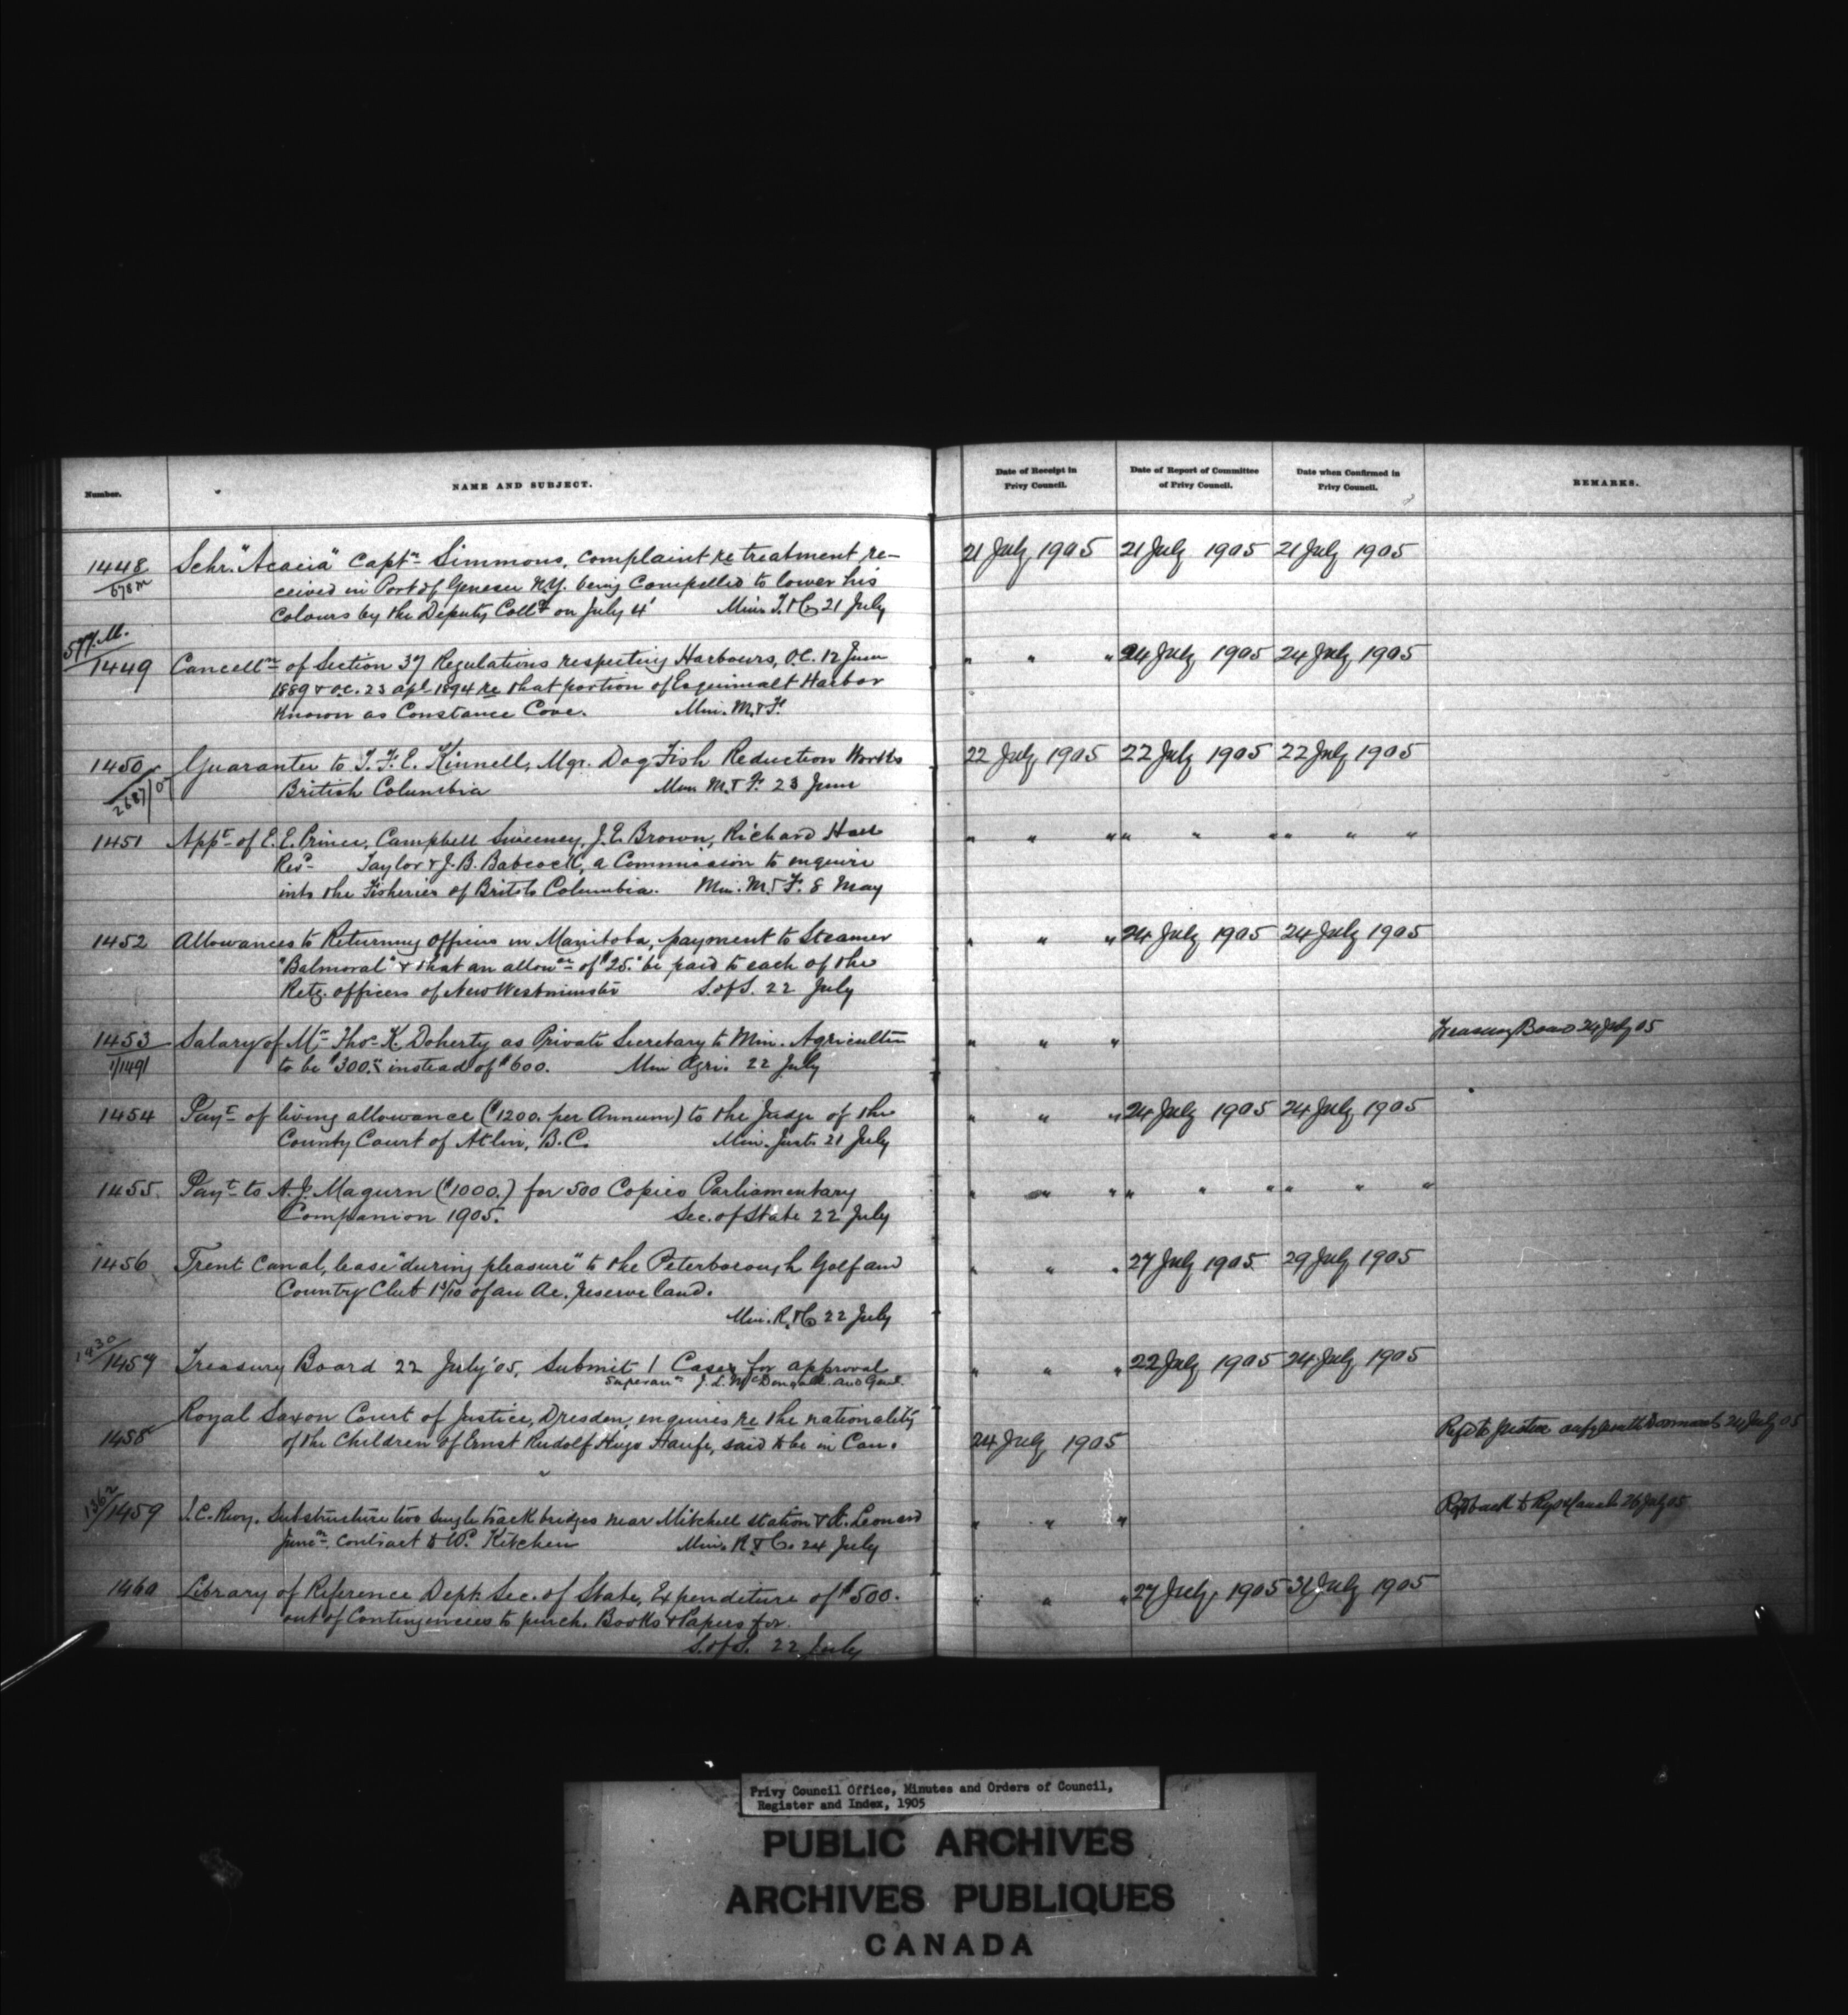 Number.
NAME AND SUBJECT.
Date of Receipt in
Privy Council.
Date of Report of Committee
of Privy Council.
Date when Confirmed in
Privy Council.
REMARKS.
1448
678 M
Schr. "Acacia" Captn Simmons, complaint re treatment re-
ceived in Port of Genesee N.Y. being Compelled to lower his
Colours by the Deputy Collr on July 4' Min. T. & C. 21 July
21 July 1905 21 July 1905 21 July 1905
577 M.
1449
Cancelln of Section 37 Regulations respecting Harbours, O.C. 12 June
1889 & O.C. 23 Apl 1894 re that portion of Esquimalt Harbor
Known as Constance Cove. Min. M. & F.
" " " 24 July 1905 24 July 1905
1450
2687/05
Guarantee to T. F. E. Kinnell, Mgr. Dog Fish Reduction Works
British Columbia Min M. & F. 23 June
22 July 1905 22 July 1905 22 July 1905
1451
Appt of E. E. Prince, Campbell Sweeney, J. E. Brown, Richard Hall
Revd Taylor & J. B. Babcock, a Commission to enquire
into the Fisheries of British Columbia. Min. M. & F. 8 May
" " " " " " " " "
1452
Allowances to Returning Officers in Manitoba, payment to Steamer
"Balmoral" & that an allowce of $25. be paid to each of the
Retg. officers of New Westminster S. of S. 22 July
" " " 24 July 1905 24 July 1905
1453
1/1491
Salary of Mr Thos K. Doherty as Private Secretary to Min. Agriculture
to be $300. instead of $600. Min Agri. 22 July
" " "
Treasury Board 24 July 05
1454
Payt of living allowance ($1200. per Annum) to the Judge of the
County Court of Atlin, B.C. Min. Just. 21 July
" " " 24 July 1905 24 July 1905
1455.
Payt to A. J. Magurn ($1000.) for 500 Copies Parliamentary
Companion 1905. Sec. of State 22 July
" " " " " " " " "
1456
Trent Canal, lease "during pleasure" to the Peterborough Golf and
Country Club of an Ac. reserve land.
Min. R. & C. 22 July
" " " 27 July 1905 29 July 1905
1430
1457
Treasury Board 22 July '05, Submit 1 Case for approval
Superann J. L. McDougall. Aud Genl.
" " " 22 July 1905 24 July 1905
1458
Royal Saxon Court of Justice, Dresden, enquires re the nationality
of the Children of Ernst Rudolf Hugo Haufe, said to be in Can.
24 July 1905
Refd to Justice 24 July 05
1362
1459
I. C. Rwy. Substructure two single track bridges near Mitchell station & St. Leonard
Juncn. Contract to W. Kitchen Min. R. & C. 24 July
" " "
Refd back to Rys & Canals 26 July 05
1460
Library of Reference Dept. Sec. of State, Expenditure of $500.
out of Contingencies to purch. Books & Papers for.
S. of S. 22 July
" " " 27 July 1905 31 July 1905
Privy Council Office, Minutes and Orders of Council,
Register and Index, 1905
PUBLIC ARCHIVES
ARCHIVES PUBLIQUES
CANADA